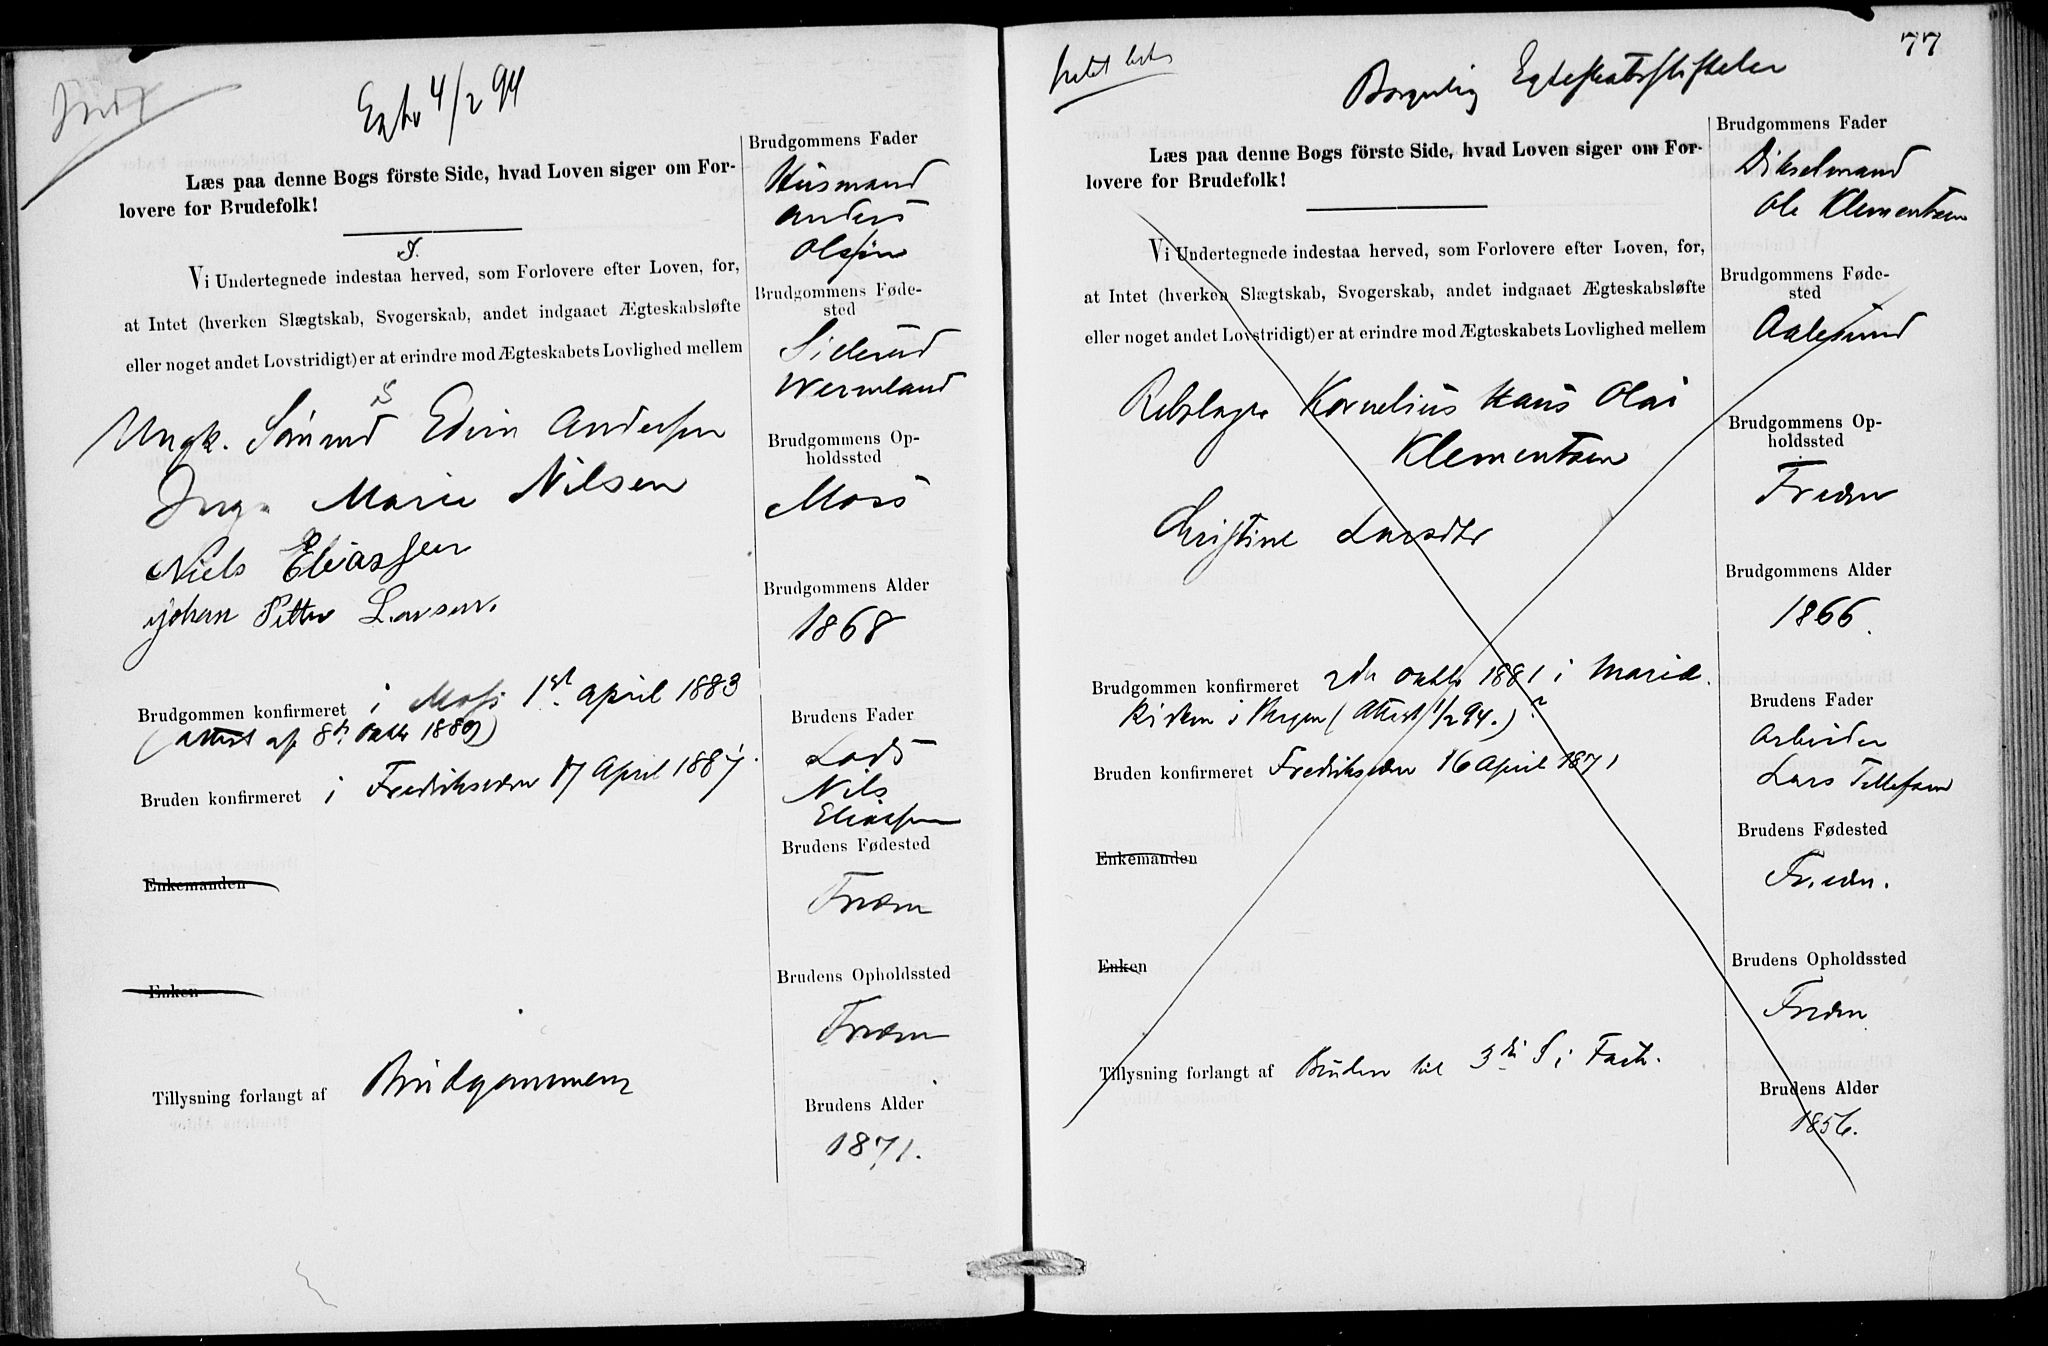 Indf
4/2 94
Læs paa denne Bogs förste Side, hvad Loven siger om For-
lovere for Brudefolk!
Vi Undertegnede indestaa herved, som Forlovere efter Loven, for,
at Intet (hverken Slægtskab, Svogerskab, andet indgaaet Ægteskabsløfte
eller noget andet Lovstridigt) er at erindre mod Ægteskabets Lovlighed mellem
Ungk. Edvin Andersen
Inga Marie Nilsen
Niels Eliassen
Johan Petter Larsen.
Brudgommen konfirmeret i Moss 1st april 1883
(attest af 8de Oktb 1889)
Bruden konfirmeret i Fredriksværn 17 April 1887.
Enkemanden
Enken
Tillysning forlangt af Brudgommen
Brudgommens Fader
Husmand
Anders
Olsen
Brudgommens Føde-
sted
Sillerud
Wermland
Brudgommens Op-
holdssted
Moss
Brudgommens Alder
1868
Brudens Fader
Lods
Nils
Eliassen
Brudens Fødested
Frværn
Brudens Opholdssted
Frværn
Brudens Alder
1871.
77
Borgerlig Egteskabsstiftelse
Læs paa denne Bogs förste Side, hvad Loven siger om For-
lovere for Brudefolk!
Vi Undertegnede indestaa herved, som Forlovere efter Loven, for,
at Intet (hverken Slægtskab, Svogerskab, andet indgaaet Ægteskabsløfte
eller noget andet Lovstridigt) er at erindre mod Ægteskabets Lovlighed mellem
Rebslager Kornelius Hans Olai
Klementsen
Christine Larsdtr
Brudgommen konfirmeret 2den Oktb 1881 i Marie
Kirken i Bergen (Attest 1/2 94.)
Bruden konfirmeret Fredriksværn 16 April 1871
Enkemanden
Enken
Tillysning forlangt af Bruden til 3die S i Faste.
Brudgommens Fader
Dikselmand
Ole Klementsen
Brudgommens Føde-
sted
Aalesund
Brudgommens Op-
holdssted
Frværn
Brudgommens Alder
1866.
Brudens Fader
Arbeider
Lars Tellefsen
Brudens Fødested
Frværn.
Brudens Opholdssted
Frværn
Brudens Alder
1856.